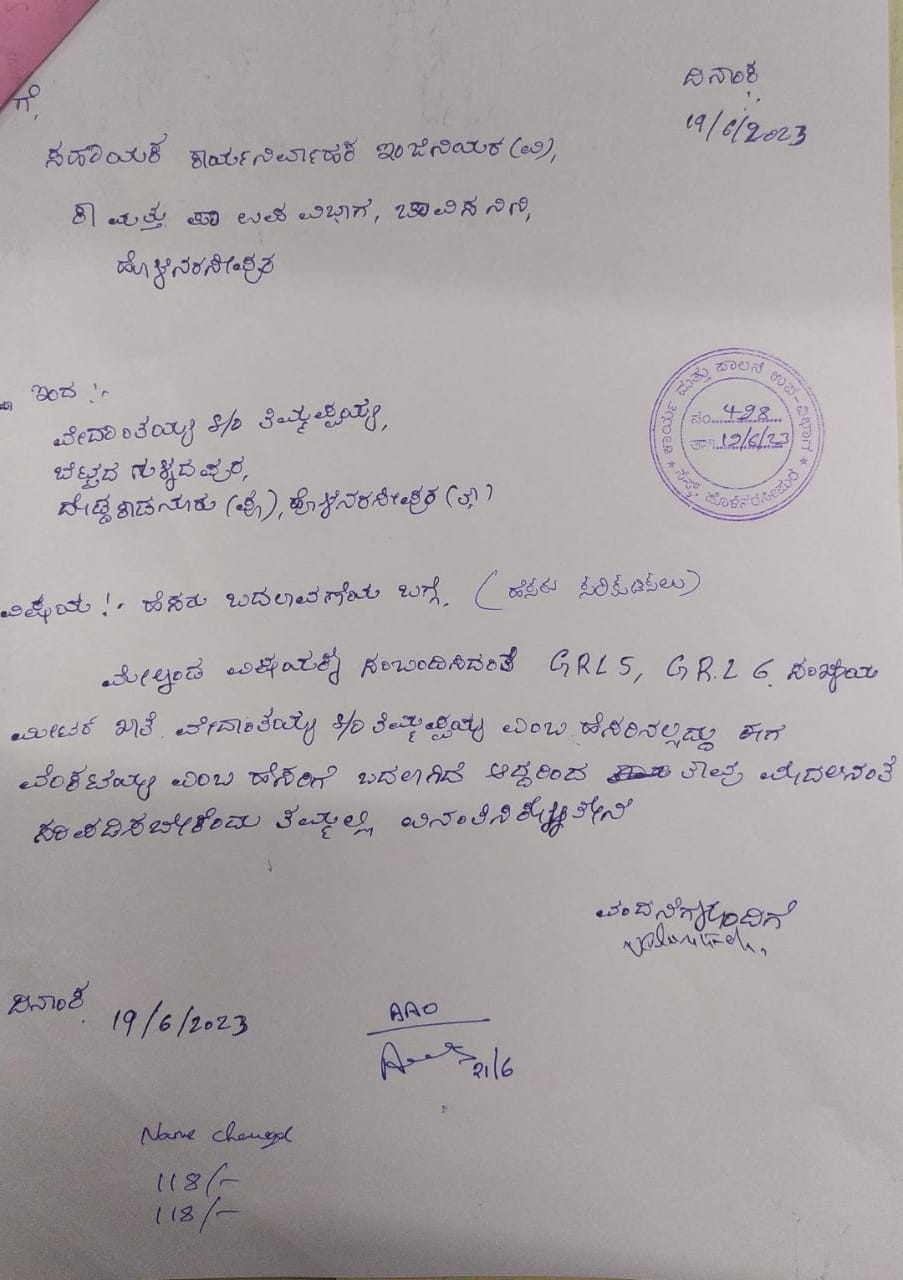 ದಿನಾಂಕ
19/6/2023
ಗೆ,
ಸಹಾಯಕ ಕಾರ್ಯನಿರ್ವಾಹಕ ಇಂಜಿನಿಯರ (ವಿ),
ಕಾ ಮತ್ತು ಪಾ ಉಪ ವಿಭಾಗ, ಚಾವಿಸನಿನಿ,
ಹೊಳೆನರಸೀಪುರ
ಇಂದ :-
ವೇದಾಂತಯ್ಯ S/O ತಿಮ್ಮಪ್ಪಯ್ಯ,
ಬೆಟ್ಟದ
(ಪೋ), ಹೊಳೆನರಸೀಪುರ (ತಾ)
ಕಾರ್ಯ ಮತ್ತು ಪಾಲನೆ ಉಪ-ವಿಭಾಗ
ನಂ. 498
ತಾ: 19/6/23
ಹೊಳೆನರಸೀಪುರ
ವಿಷಯ :- ಹೆಸರು ಬದಲಾವಣೆಯ ಬಗ್ಗೆ. (ಹೆಸರು ಸರಿಪಡಿಸಲು)
ಮೇಲ್ಕಂಡ ವಿಷಯಕ್ಕೆ ಸಂಬಂದಿಸಿದಂತೆ GRL5, GR.L 6. ಸಂಖ್ಯೆಯ
ಮೀಟರ ಖಾತೆ ವೇದಾಂತಯ್ಯ S/O ತಿಮ್ಮಪ್ಪಯ್ಯ ಎಂಬ ಹೆಸರಿನಲ್ಲಿದ್ದು ಈಗ
ವೆಂಕಟಯ್ಯ ಎಂಬ ಹೆಸರಿಗೆ ಬದಲಾಗಿದೆ ಆದ್ದರಿಂದ ತಾವು ಮೊದಲಿನಂತೆ
ಸರಿಪಡಿಸಬೇಕೆಂದು ತಮ್ಮಲ್ಲಿ ವಿನಂತಿಸಿಕೊಳ್ಳುತ್ತೇನೆ
ವಂದನೆಗಳೊಂದಿಗೆ
ದಿನಾಂಕ
19/6/2023
AAO
21/6
Name changd
118/-
118/-